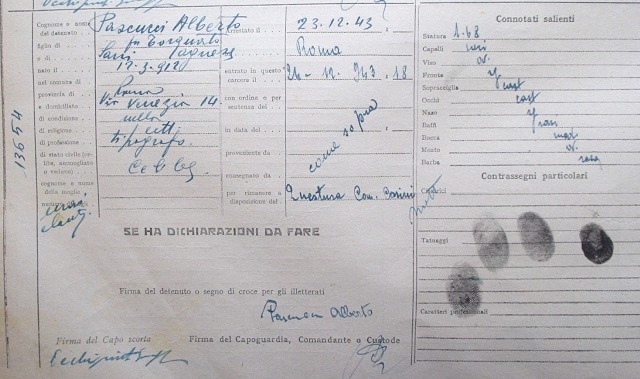 Cognome e nome del detenuto Pascucci Alberto
figlio di fu Torquato
e di Sarri Agnese
nato il 17-3-912
nel comune di Roma
provincia di
e domiciliato Via Venezia 14
di condizione nulla
di religione catt
di professione tipografo
di stato civile (celibe, ammogliato o vedovo) Celibe
cognome e nome della moglie
13654
Arrestato il 23.12.43
a Roma
entrato in questo carcere il 24-12-943 18
con ordine e per sentenza del
in data del
come sopra
proveniente da
consegnato da
per rimanere a disposizione del Questura Com. Cosini
SE HA DICHIARAZIONI DA FARE
Firma del detenuto o segno di croce per gli illetterati
Pascucci Alberto
Firma del Capo scorta
Firma del Capoguardia, Comandante o Custode
Connotati salienti
Statura 1.68
Capelli neri
Viso ov.
Fronte
Sopracciglia cast
Occhi cast
Naso
Baffi
Bocca med
Mento ov.
Barba rasa
Contrassegni particolari
Tatuaggi
Caratteri professionali